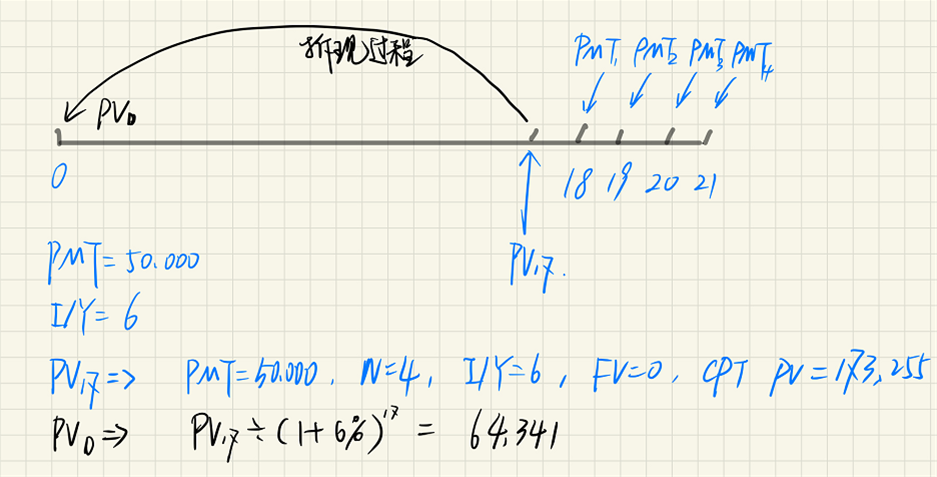 折现过程
PMT₁ PMT₂ PMT₃ PMT₄
PV₀
0
18 19 20 21
PV₁₇.
PMT=50.000
I/Y=6
PV₁₇=> PMT=50.000, N=4, I/Y=6, FV=0, CPT PV=173,255
PV₀=> PV₁₇÷(1+6%)¹⁷ = 64,341